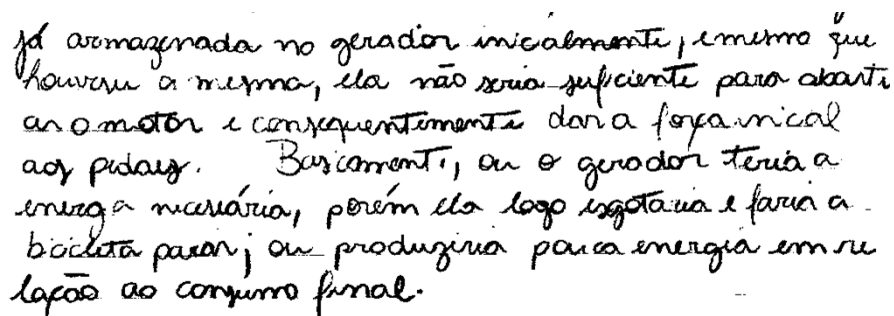 já armazenada no gerador inicialmente, e mesmo que
houvesse a mesma, ela não seria suficiente para abaste
cer o motor e consequentemente dar a força inical
aos pedais. Basicamente, ou o gerador teria a
energa necessária, porém ela logo esgotaria e faria a
bicicleta parar; ou produziria pouca energia em re
lação ao consumo final.